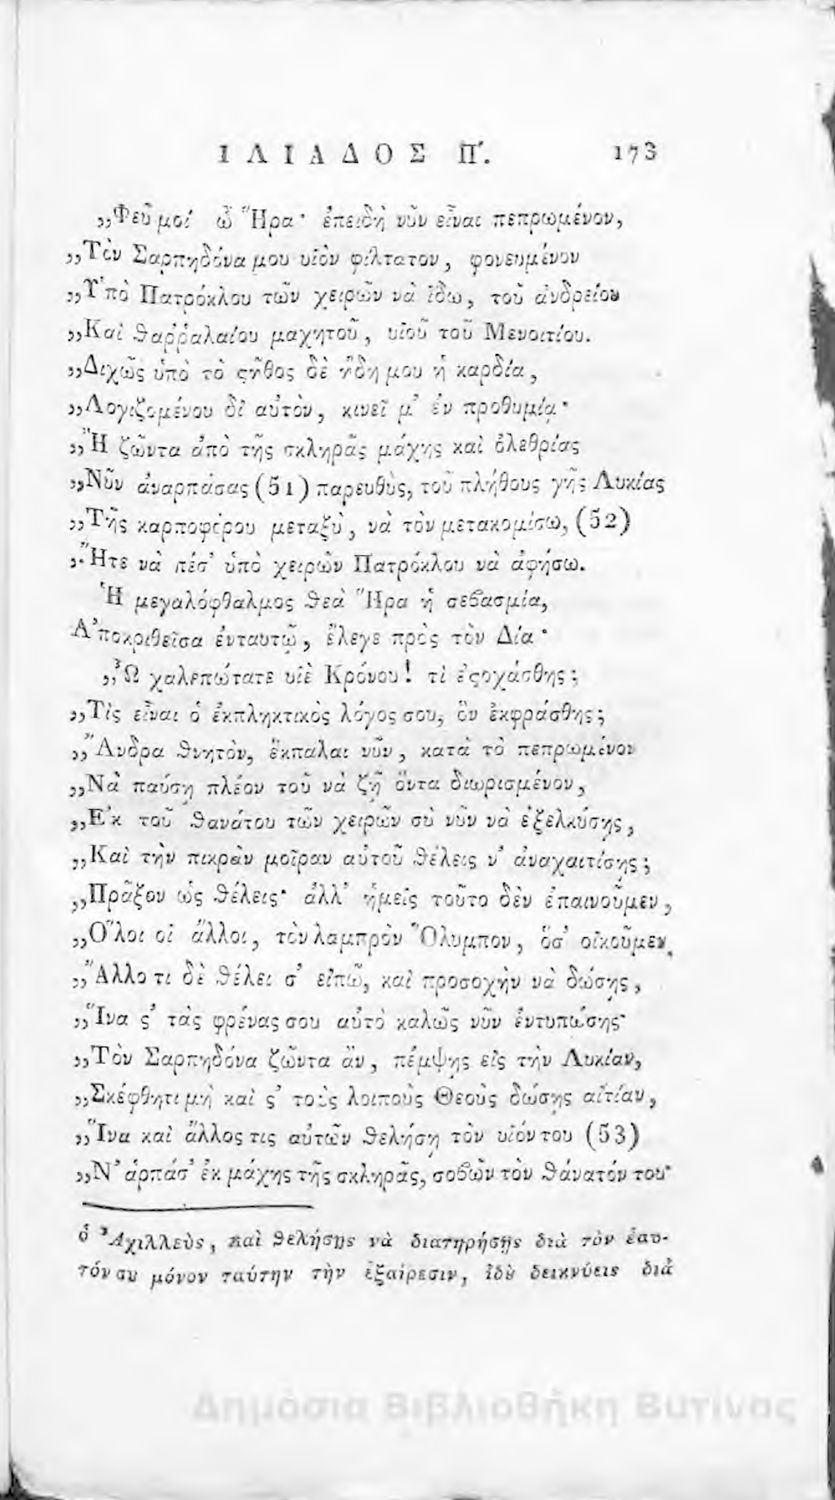 ΙΛΙΑΔΟΣ Π'. 173
„Φεῦ μοί ὦ Ἥρα· ἐπειδὴ νῦν εἶναι πεπρωμένον,
„Τὸν Σαρπηδόνα μου υἱὸν φίλτατον, φονευμένον
„Ὑπὸ Πατρόκλου τῶν χειρῶν νὰ ἴδω, τοῦ ἀνδρείου
„Καὶ θαῤῥαλαίου μαχητοῦ, υἱοῦ τοῦ Μενοιτίου.
„Διχῶς ὑπὸ τὸ ϛῆθος δὲ ἤδη μου ἡ καρδία,
„Λογιζομένου δἰ αὐτὸν, κινεῖ μ' ἐν προθυμίᾳ·
„Ἢ ζῶντα ἀπὸ τῆς σκληρᾶς μάχης καὶ ὀλεθρίας
„Νῦν ἀναρπάσας (51) παρευθὺς, τοῦ πλήθους γῆς Λυκίας
„Τῆς καρποφόρου μεταξὺ, νὰ τὸν μετακομίσω, (52)
„Ἤτε νὰ πέσ' ὑπὸ χειρῶν Πατρόκλου νὰ ἀφήσω.
Ἡ μεγαλόφθαλμος θεὰ Ἥρα ἡ σεβασμία,
Ἀποκριθεῖσα ἐνταυτῷ, ἔλεγε πρὸς τὸν Δία·
„Ὦ χαλεπώτατε υἱὲ Κρόνου! τὶ ἐϛοχάσθης;
„Τὶς εἶναι ὁ ἐκπληκτικὸς λόγος σου, ὃν ἐκφράσθης;
„Ἄνδρα θνητὸν, ἔκπαλαι νῦν, κατὰ τὸ πεπρωμένον
„Νὰ παύσῃ πλέον τοῦ νὰ ζῇ ὄντα διωρισμένον,
„Ἐκ τοῦ θανάτου τῶν χειρῶν σὺ νῦν νὰ ἐξελκύσῃς,
„Καὶ τὴν πικρὰν μοῖραν αὐτοῦ θέλεις ν' ἀναχαιτίσῃς;
„Πρᾶξον ὡς θέλεις· ἀλλ' ἡμεῖς τοῦτο δὲν ἐπαινοῦμεν,
„Ὅλοι οἱ ἄλλοι, τὸν λαμπρὸν Ὄλυμπον, ὅσ' οἰκοῦμεν.
„Ἄλλο τι δὲ θέλει σ' εἰπῶ, καὶ προσοχὴν νὰ δώσῃς,
„Ἵνα ϛ' τὰς φρένας σου αὐτὸ καλῶς νῦν ἐντυπώσῃς·
„Τὸν Σαρπηδόνα ζῶντα ἂν, πέμψῃς εἰς τὴν Λυκίαν,
„Σκέφθητι μὴ καὶ ϛ' τοὺς λοιποὺς Θεοὺς δώσῃς αἰτίαν,
„Ἵνα καὶ ἄλλος τις αὐτῶν θελήσῃ τὸν υἱόν του (53)
„Ν' ἁρπάσ' ἐκ μάχης τῆς σκληρᾶς, σοβῶν τὸν θάνατόν του·
ὁ Ἀχιλλεὺς, καὶ θελήσῃς νὰ διατηρήσῃς διὰ τὸν ἑαυ-
τόν σȣ μόνον ταύτην τὴν ἐξαίρεσιν, ἰδȣ̀ δεικνύεις διὰ
Δημόσια Βιβλιοθήκη Βυτίνας